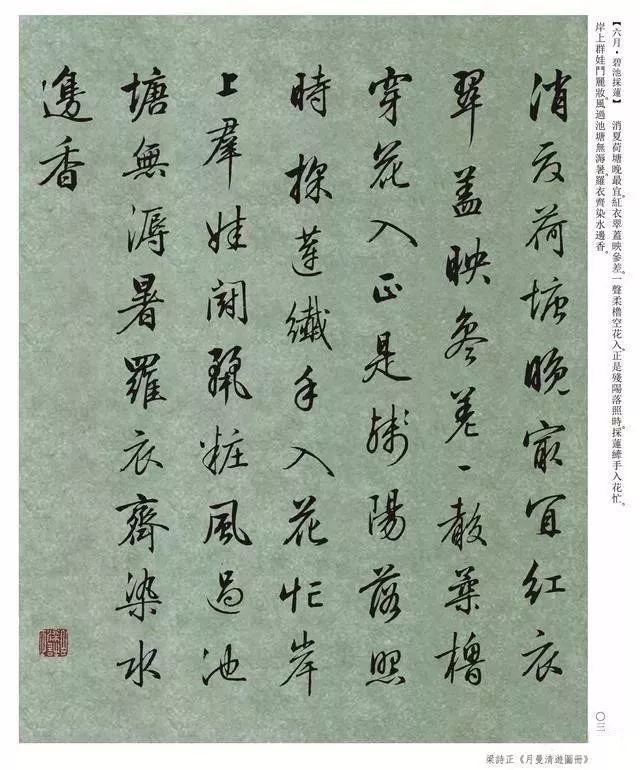 【六月·碧池採蓮】 消夏荷塘晚最宜。紅衣翠蓋映參差。一聲柔櫓空花入。正是殘陽落照時。採蓮縴手入花忙。
岸上群娃鬥麗妝。風過池塘無海暑。羅衣齊染水邊香。
消夏荷塘晚冣宜紅衣
翠蓋映參差一聲柔櫓
穿花入正是殘陽落照
時採蓮纖手入花忙岸
上羣娃鬪麗粧風過池
塘無溽暑羅衣齊染水
邊香
〇三
梁詩正《月曼清遊圖冊》